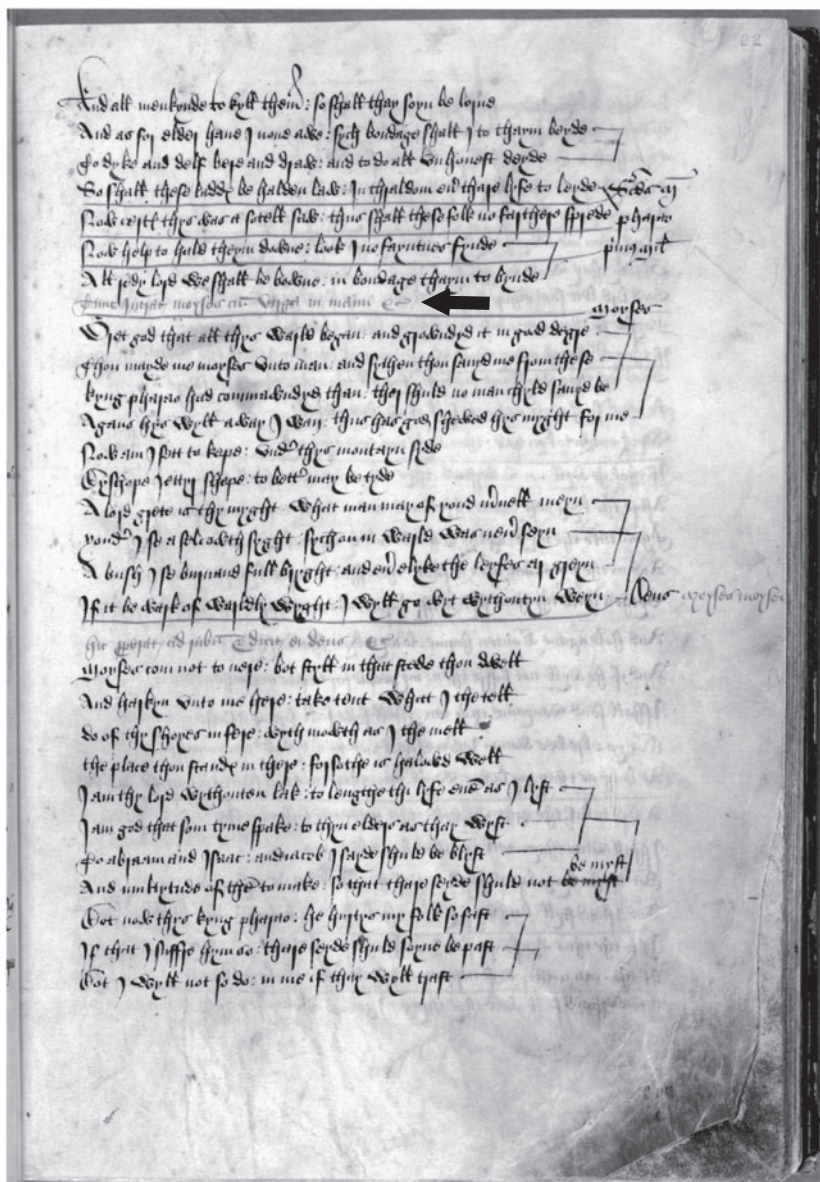 22
And all menkynde to kyll them̄ : so shall thay soyn be lorne
And as for elder haue I none awe : sych bondage shall I to thaym beyde
To dyke and delf bere and draw : and to do all vnhonest deyde
So shall these laddꝭ be halden law : In thraldom eu̓ thare lyfe to leyde Scđs mł
Now certꝭ thys was a sotell saw : thus shall these folk no farthere sprede pharao
Now help to hald theym downe : look I no fayntnes fynde p̓mꝰ mił
All redy lord we shall be bowne : in bondage thaym to bynde
Tunc intrat moyses cū virga in manu &c moyses
Gret god that all thys warld began : and growndyd it in good degre
Thou mayde me moyses vnto man : and sythen thou sauyd me from the se
kyng pharao had commawndyd than : ther shuld no man chyld sauyd be
Agans hys wyll away I wan : thus has god shewed hys myght for me
Now am I sett to kepe : vnd̓ thys montayn syde
Byshope Iettyr shepe : to bett̓ may be tyde
A lord grete is thy myght : what man may of yond m̓uell meyn
yond̓ I se a selcowth syght : sych on in warld was neu̓ seyn
A bush I se burnand full bryght : and eu̓ elyke the leyfes ar greyn
If it be wark of warldly wyght : I wyll go wyt wythoutyn weyn Deus moyses moyses
hic ꝓperat ad rubū & dicit ei deus &c
Moyses com not to nere : bot styll in that stede thou dwell
And harkyn vnto me here : take tent what I the tell
do of thy shoyes in fere : wyth mowth as I the mell
the place thou standꝭ in there : forsothe is halowd well
I am thy lord wythouten lak : to lengthe thi lyfe euē as I lyst
I am god that som tyme spake : to thyn elders as thay wyst
To abraam and Isaac : and iacob I sayde shuld be blyst
And multytude of thē to make : so that thare seyde shuld not be myst be myst
Bot now thys kyng pharao : he hurtys my folk so fast
If that I suffre hym so : thare seyde shuld soyne be past
Bot I wyll not so do : in me if thay wyll trast